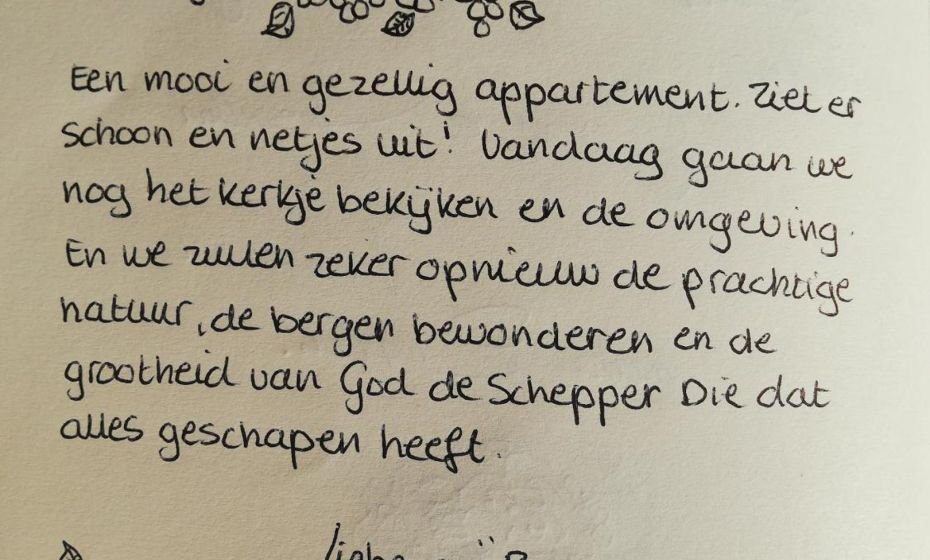 Een mooi en gezellig appartement. Ziet er
schoon en netjes uit! Vandaag gaan we
nog het kerkje bekijken en de omgeving.
En we zullen zeker opnieuw de prachtige
natuur, de bergen bewonderen en de
grootheid van God de Schepper Die dat
alles geschapen heeft.